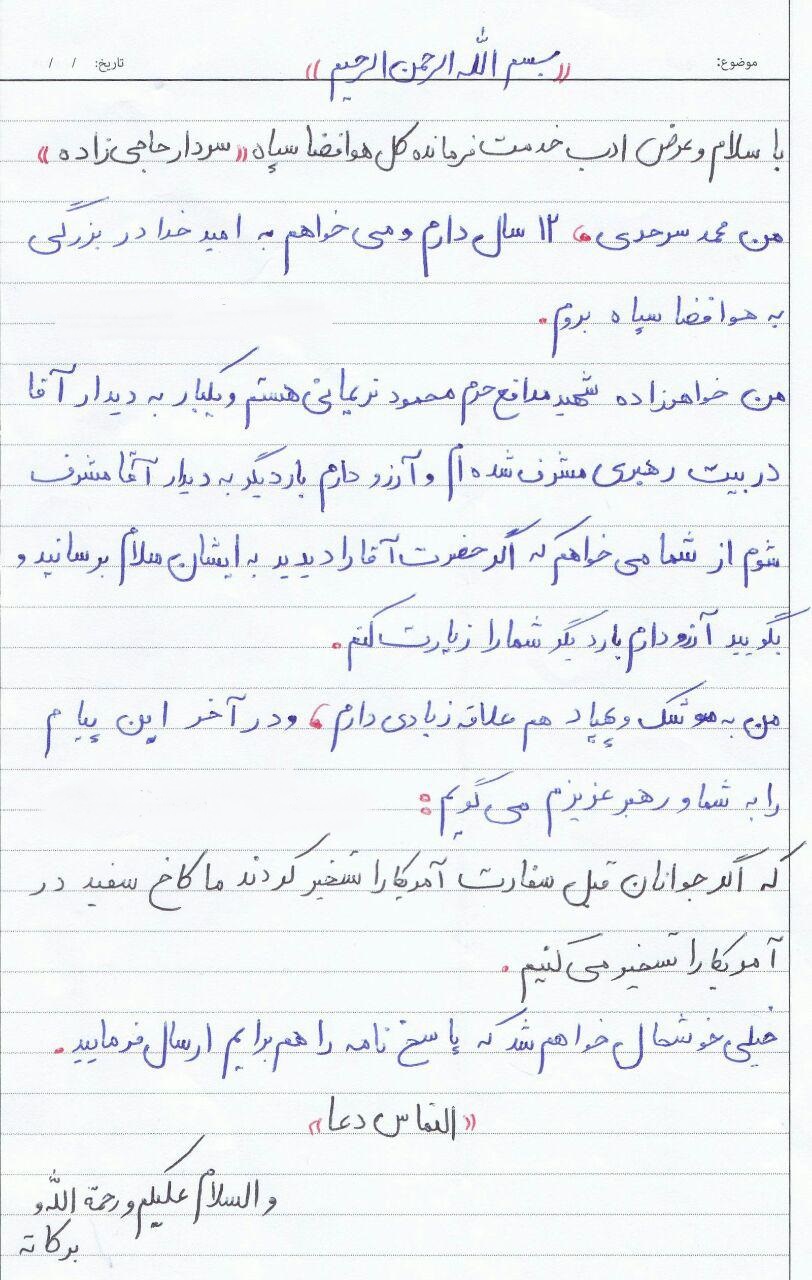 موضوع:
تاریخ: / /
«بسم الله الرحمن الرحیم»
با سلام و عرض ادب خدمت فرمانده کل هوافضا سپاه «سردار حاجی زاده»
من محمد سرحدی، ۱۲ سال دارم و می خواهم به امید خدا در بزرگی
به هوافضا سپاه بروم.
من خواهرزاده شهید مدافع حرم محمود نریمانی هستم و یکبار به دیدار آقا
در بیت رهبری مشرف شده ام و آرزو دارم بار دیگر به دیدار آقا مشرف
شوم از شما می خواهم که اگر حضرت آقا را دیدید به ایشان سلام برسانید و
بگویید آرزو دارم بار دیگر شما را زیارت کنم.
من به موشک و پهپاد هم علاقه زیادی دارم، و در آخر این پیام
را به شما و رهبر عزیزم می گویم:
که اگر جوانان قبل سفارت آمریکا را تسخیر کردند ما کاخ سفید در
آمریکا را تسخیر می کنیم.
خیلی خوشحال خواهم شد که پاسخ نامه را هم برایم ارسال فرمایید.
«التماس دعا»
والسلام علیکم و رحمة الله و
برکاته